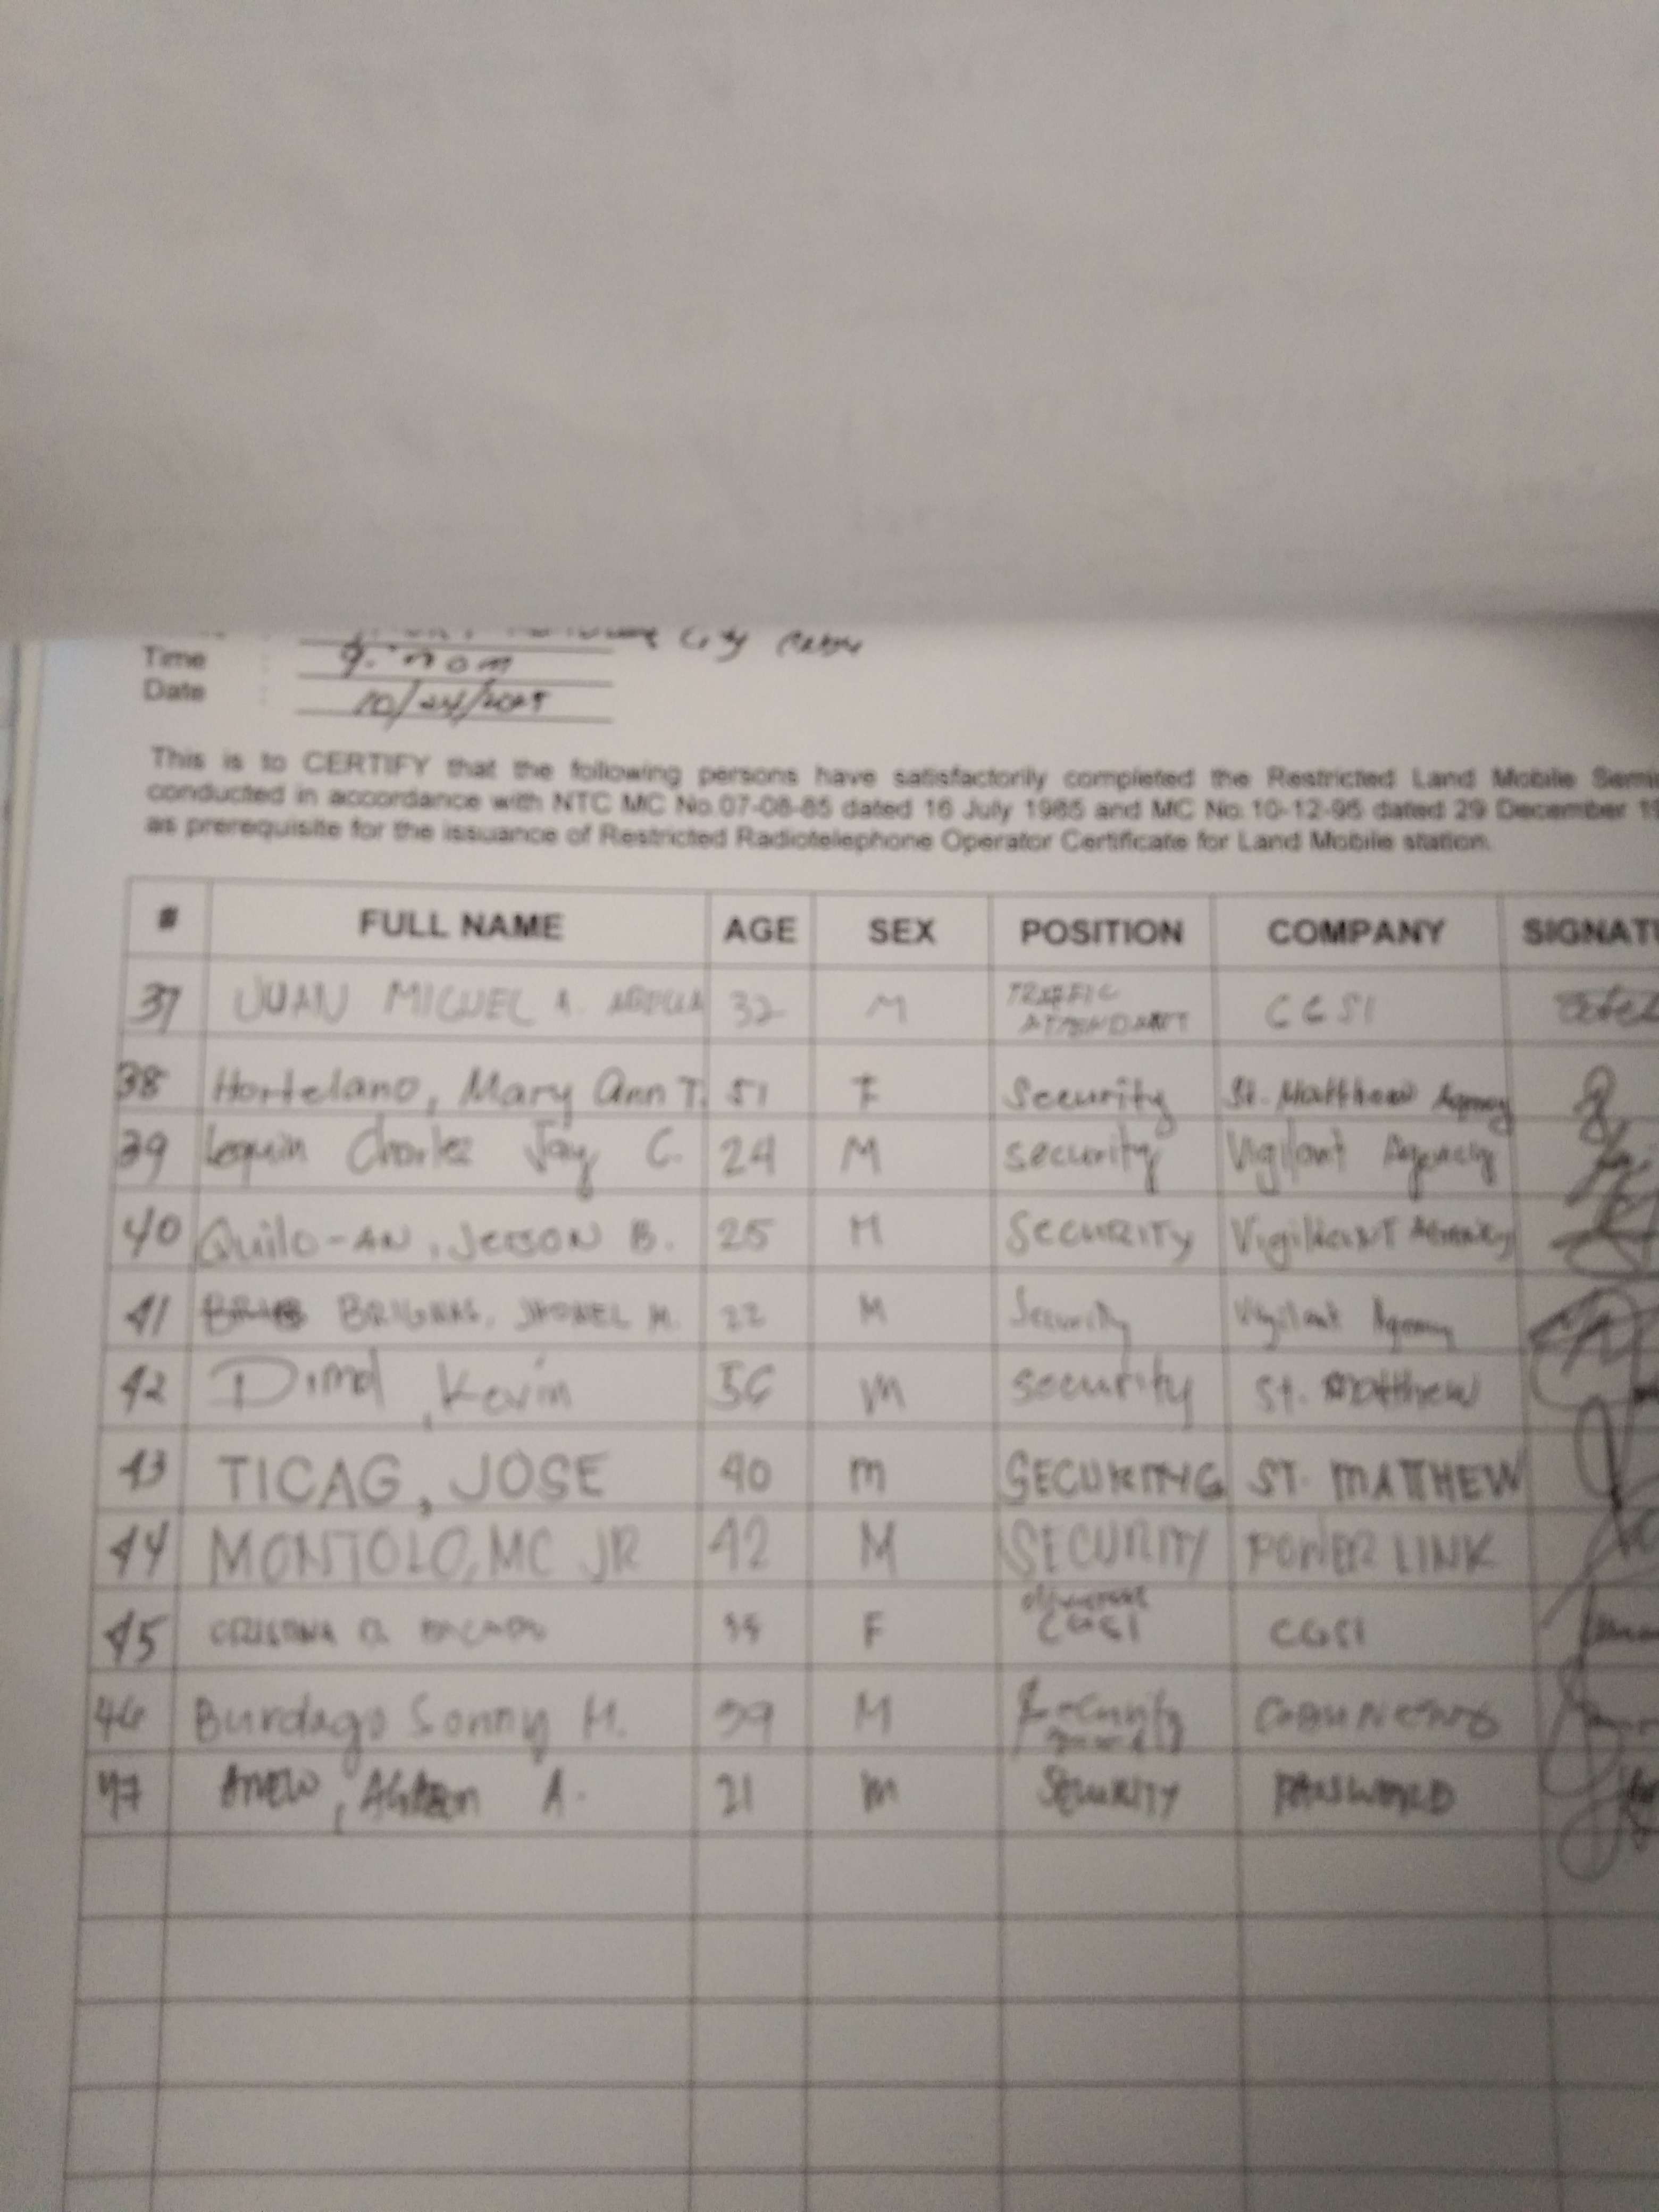 City
Time :
Date : 10/24/2025
This is to CERTIFY that the following persons have satisfactorily completed the Restricted Land Mobile
conducted in accordance with NTC MC No.07-08-85 dated 16 July 1985 and MC No.10-12-95 dated 29 December
as prerequisite for the issuance of Restricted Radiotelephone Operator Certificate for Land Mobile station.
# FULL NAME AGE SEX POSITION COMPANY
37 JUAN MIGUEL A. 32 M TRAFFIC ATTENDANT CGSI
38 Hortelano, Mary Ann T. 51 F Security St. Matthew Agency
39 Lequin Charlez Jay C. 24 M security Vigilant Agency
40 Quilo-AN, JERSON B. 25 M SECURITY
41 M. 22 M Security Vigilant Agency
42 Kevin M security St. Matthew
43 TICAG, JOSE 40 m ST. MATTHEW
44 MONTOLO, MC JR 42 M SECURITY POWER LINK
45 F CGSI CGSI
46 Burdago Sonny M. M Security
47 A. 21 m SECURITY PASSWORD